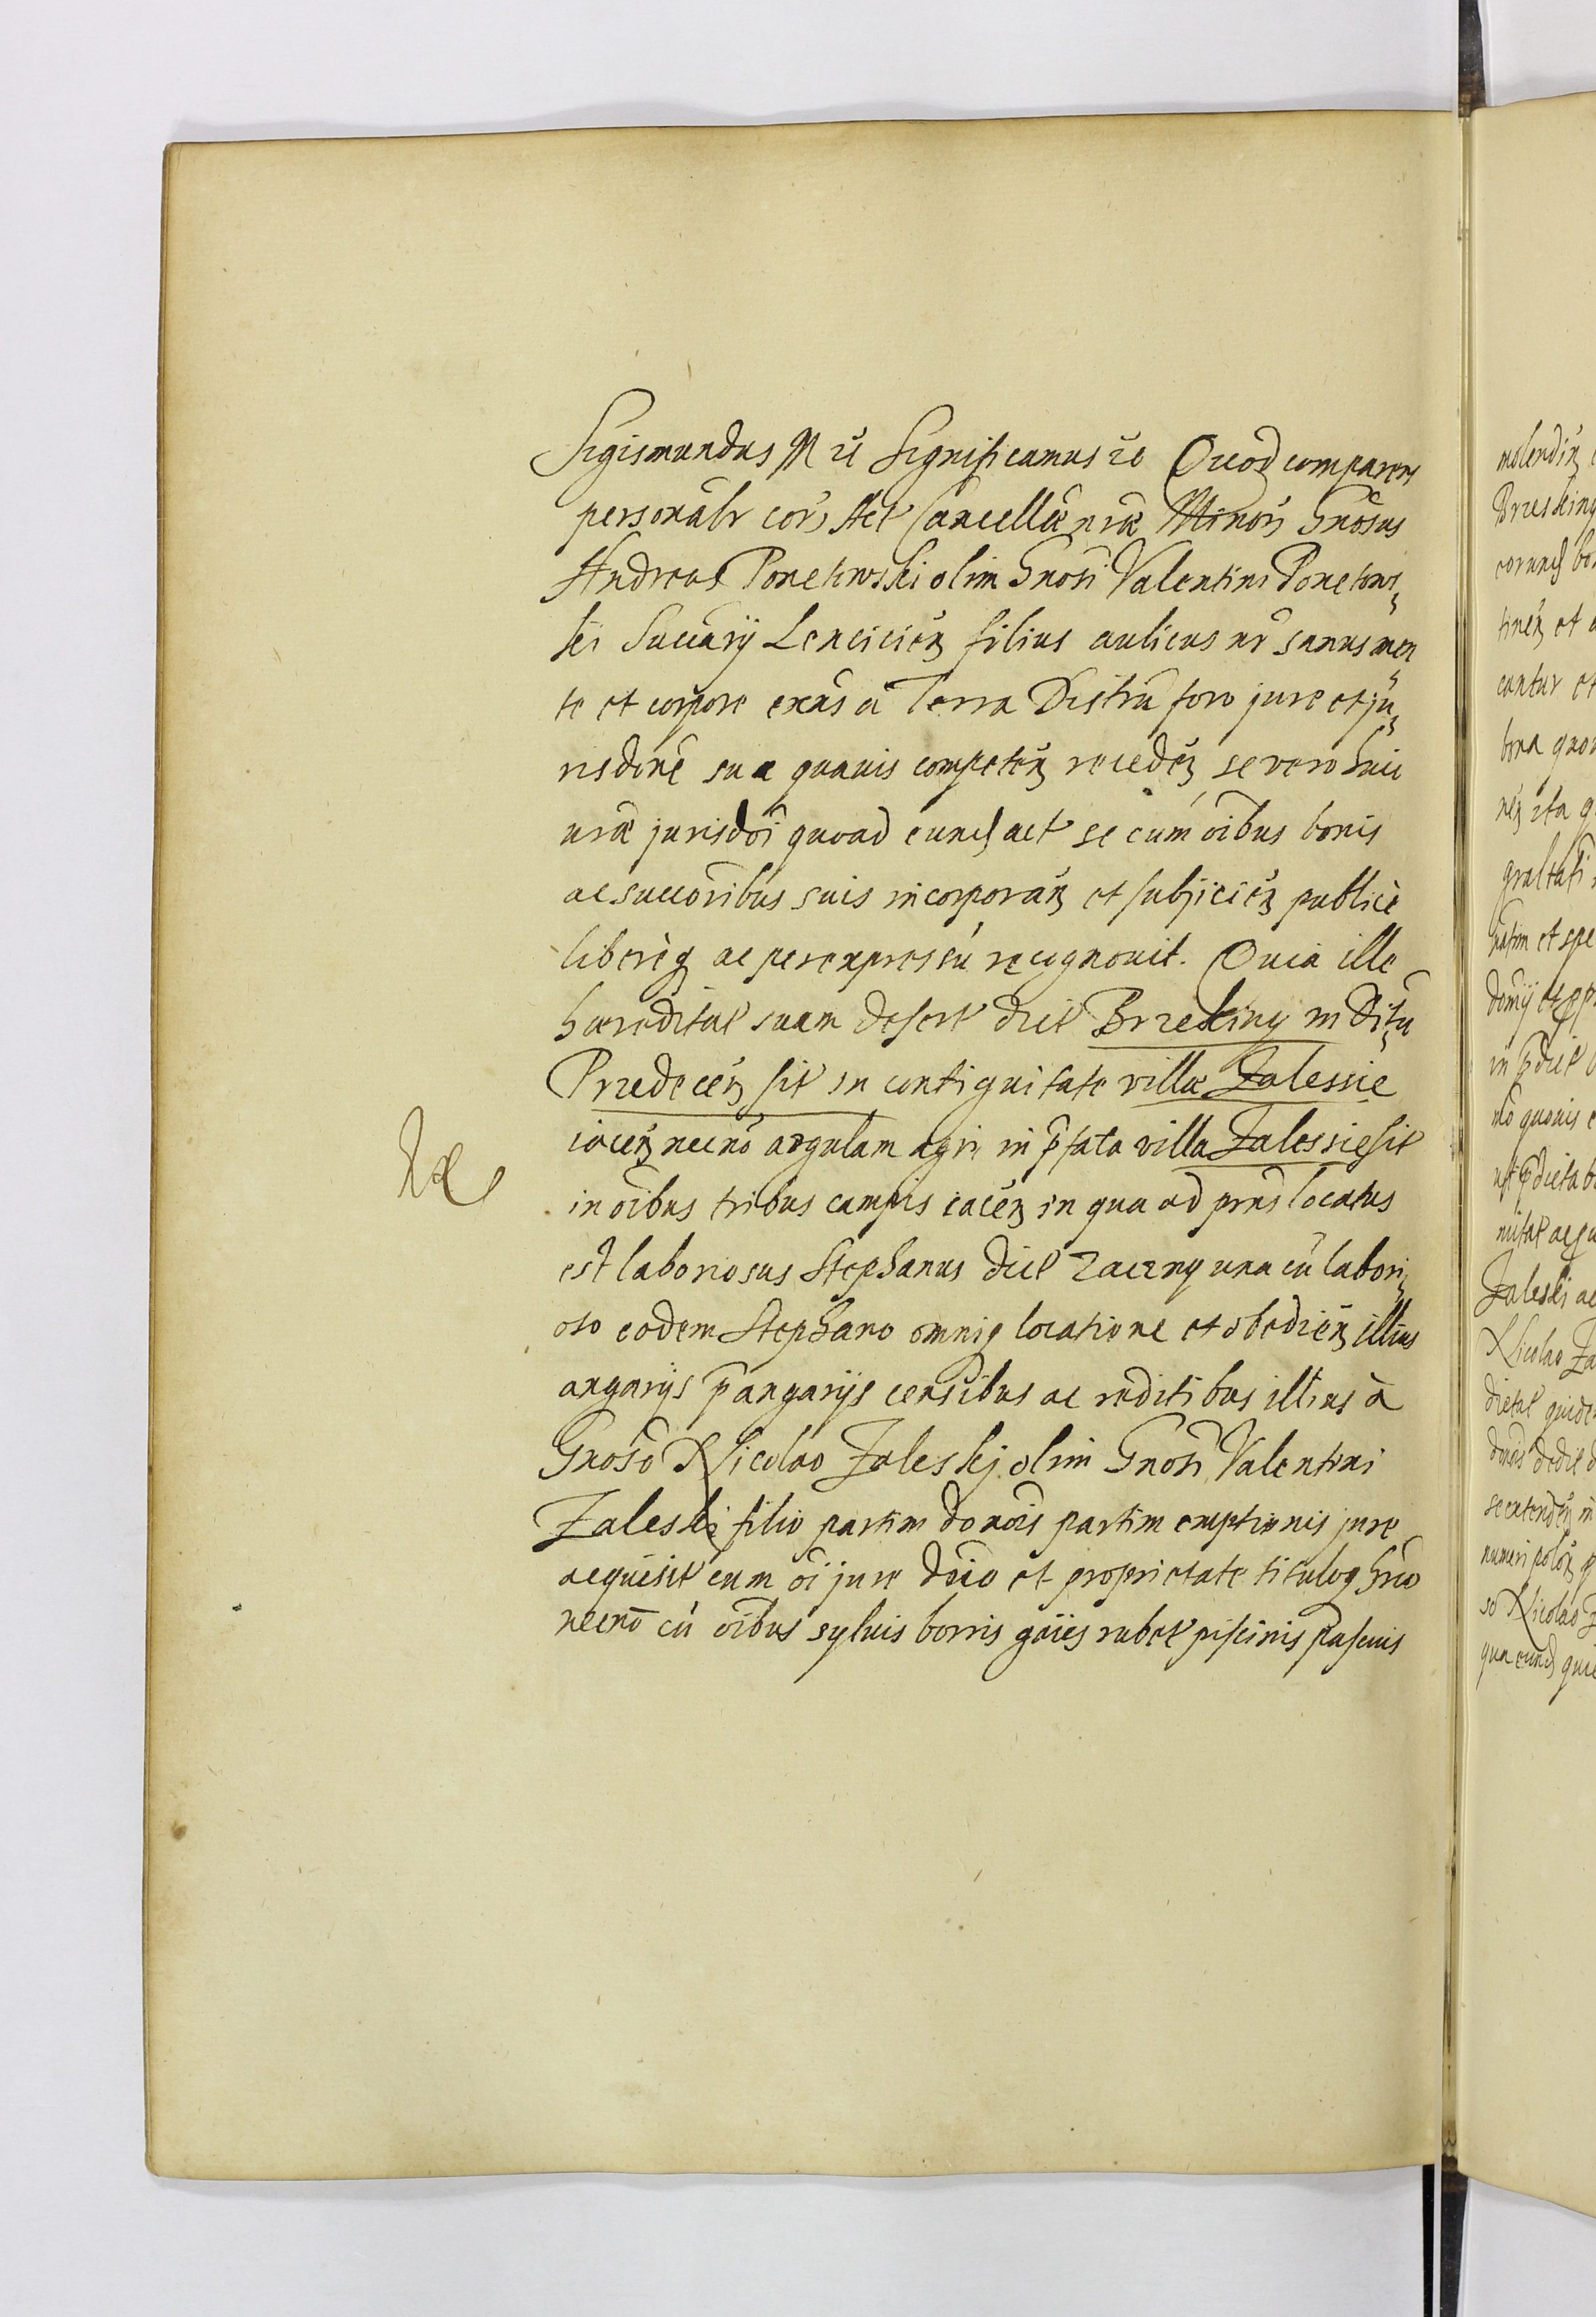 Sigismundus III etc Significamus etc Quod comparens
personalr cor Act Cancellæ nræ Minoris Gnosus
Andreas Ponetowski olim Gnosi Valentini Ponetows
kii Succarij Lencicien filius aulicus nr sanus men
te et corpore exns a Terra Distru foro jure et ju
risdone sua quauis competen receden se vero huic
nræ jurisdoi quoad eund act se cum oibus bonis
ac succoribus suis incorporan et subjicien publice
libereq ac per expressu recognouit. Quia ille
hæreditat suam desert dict Brzeziny in Ditu
Przedecen sit in contiguitate villæ Zalessie
iacen necno areulam agri in pfata villa Zalessie sit
in oibus tribus campis iacen in qua ad prns locatus
est laboriosus Stephanus dict Zaczny una cu labori
oso eodem Stephano omniq locatione et obedien illius
angarijs pangarijs censibus ac reditibus illius à
Gnoso Nicolao Zaleskj olim Gnosi Valentini
Zaleski filio partim donois partim emptionis jure
acquisit cum oi jure dnio et proprietate tituloq hrio
necno cu oibus syluis borris gaiis rubet piscinis pascuis
molendin
Brzeziny
eorund bo
tinen et
cantur et
bona quo
nen ita q
gnaltati
natim et spe
domij et pp
in pdict
mo quouis
ut pdicta b
nuitat ac q
Zaleski ac
Nicolao Za
dictat quide
donois dedit d
se extenden in
numeri polon
so Nicolao Z
qua eund quie